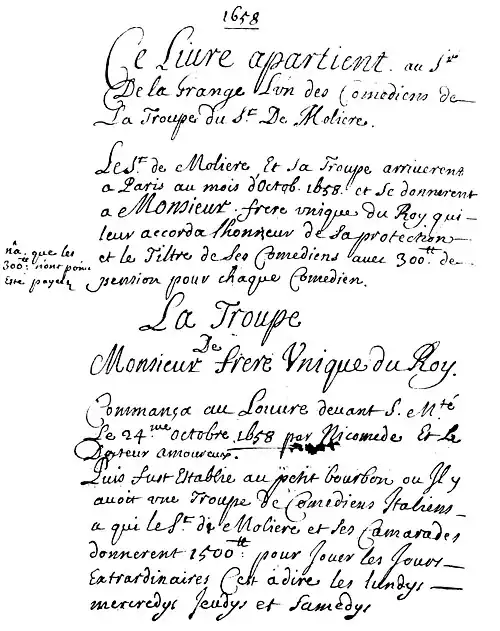 1658
Ce Livre apartient au Sr
De la Grange L'vn des Comediens de
La Troupe du Sr. De Moliere.
Le Sr. de Moliere Et sa Troupe arriuerent
a Paris au mois d'Octob. 1658. et se donnerent
a Monsieur frere vnique du Roy, qui
leur accorda l'honneur de sa protection
et le Tiltre de Ses Comediens avec 300tt. de
pension pour chaque Comedien.
na. que les
300tt. n'ont point
Esté payez
La Troupe
De
Monsieur frere Vnique du Roy.
Commança au Louure deuant S. Mté
Le 24me octobre 1658 par Nicomede Et le
Docteur amoureux.
Puis fust Establie au petit bourbon ou Il y
auoit vne Troupe de Comediens Italiens
a qui le Sr. de Moliere et Ses Camarades
donnerent 1500tt. pour Jouer les Jours
Extraordinaires C'est a dire les lundys
mercredys Jeudys et Samedys